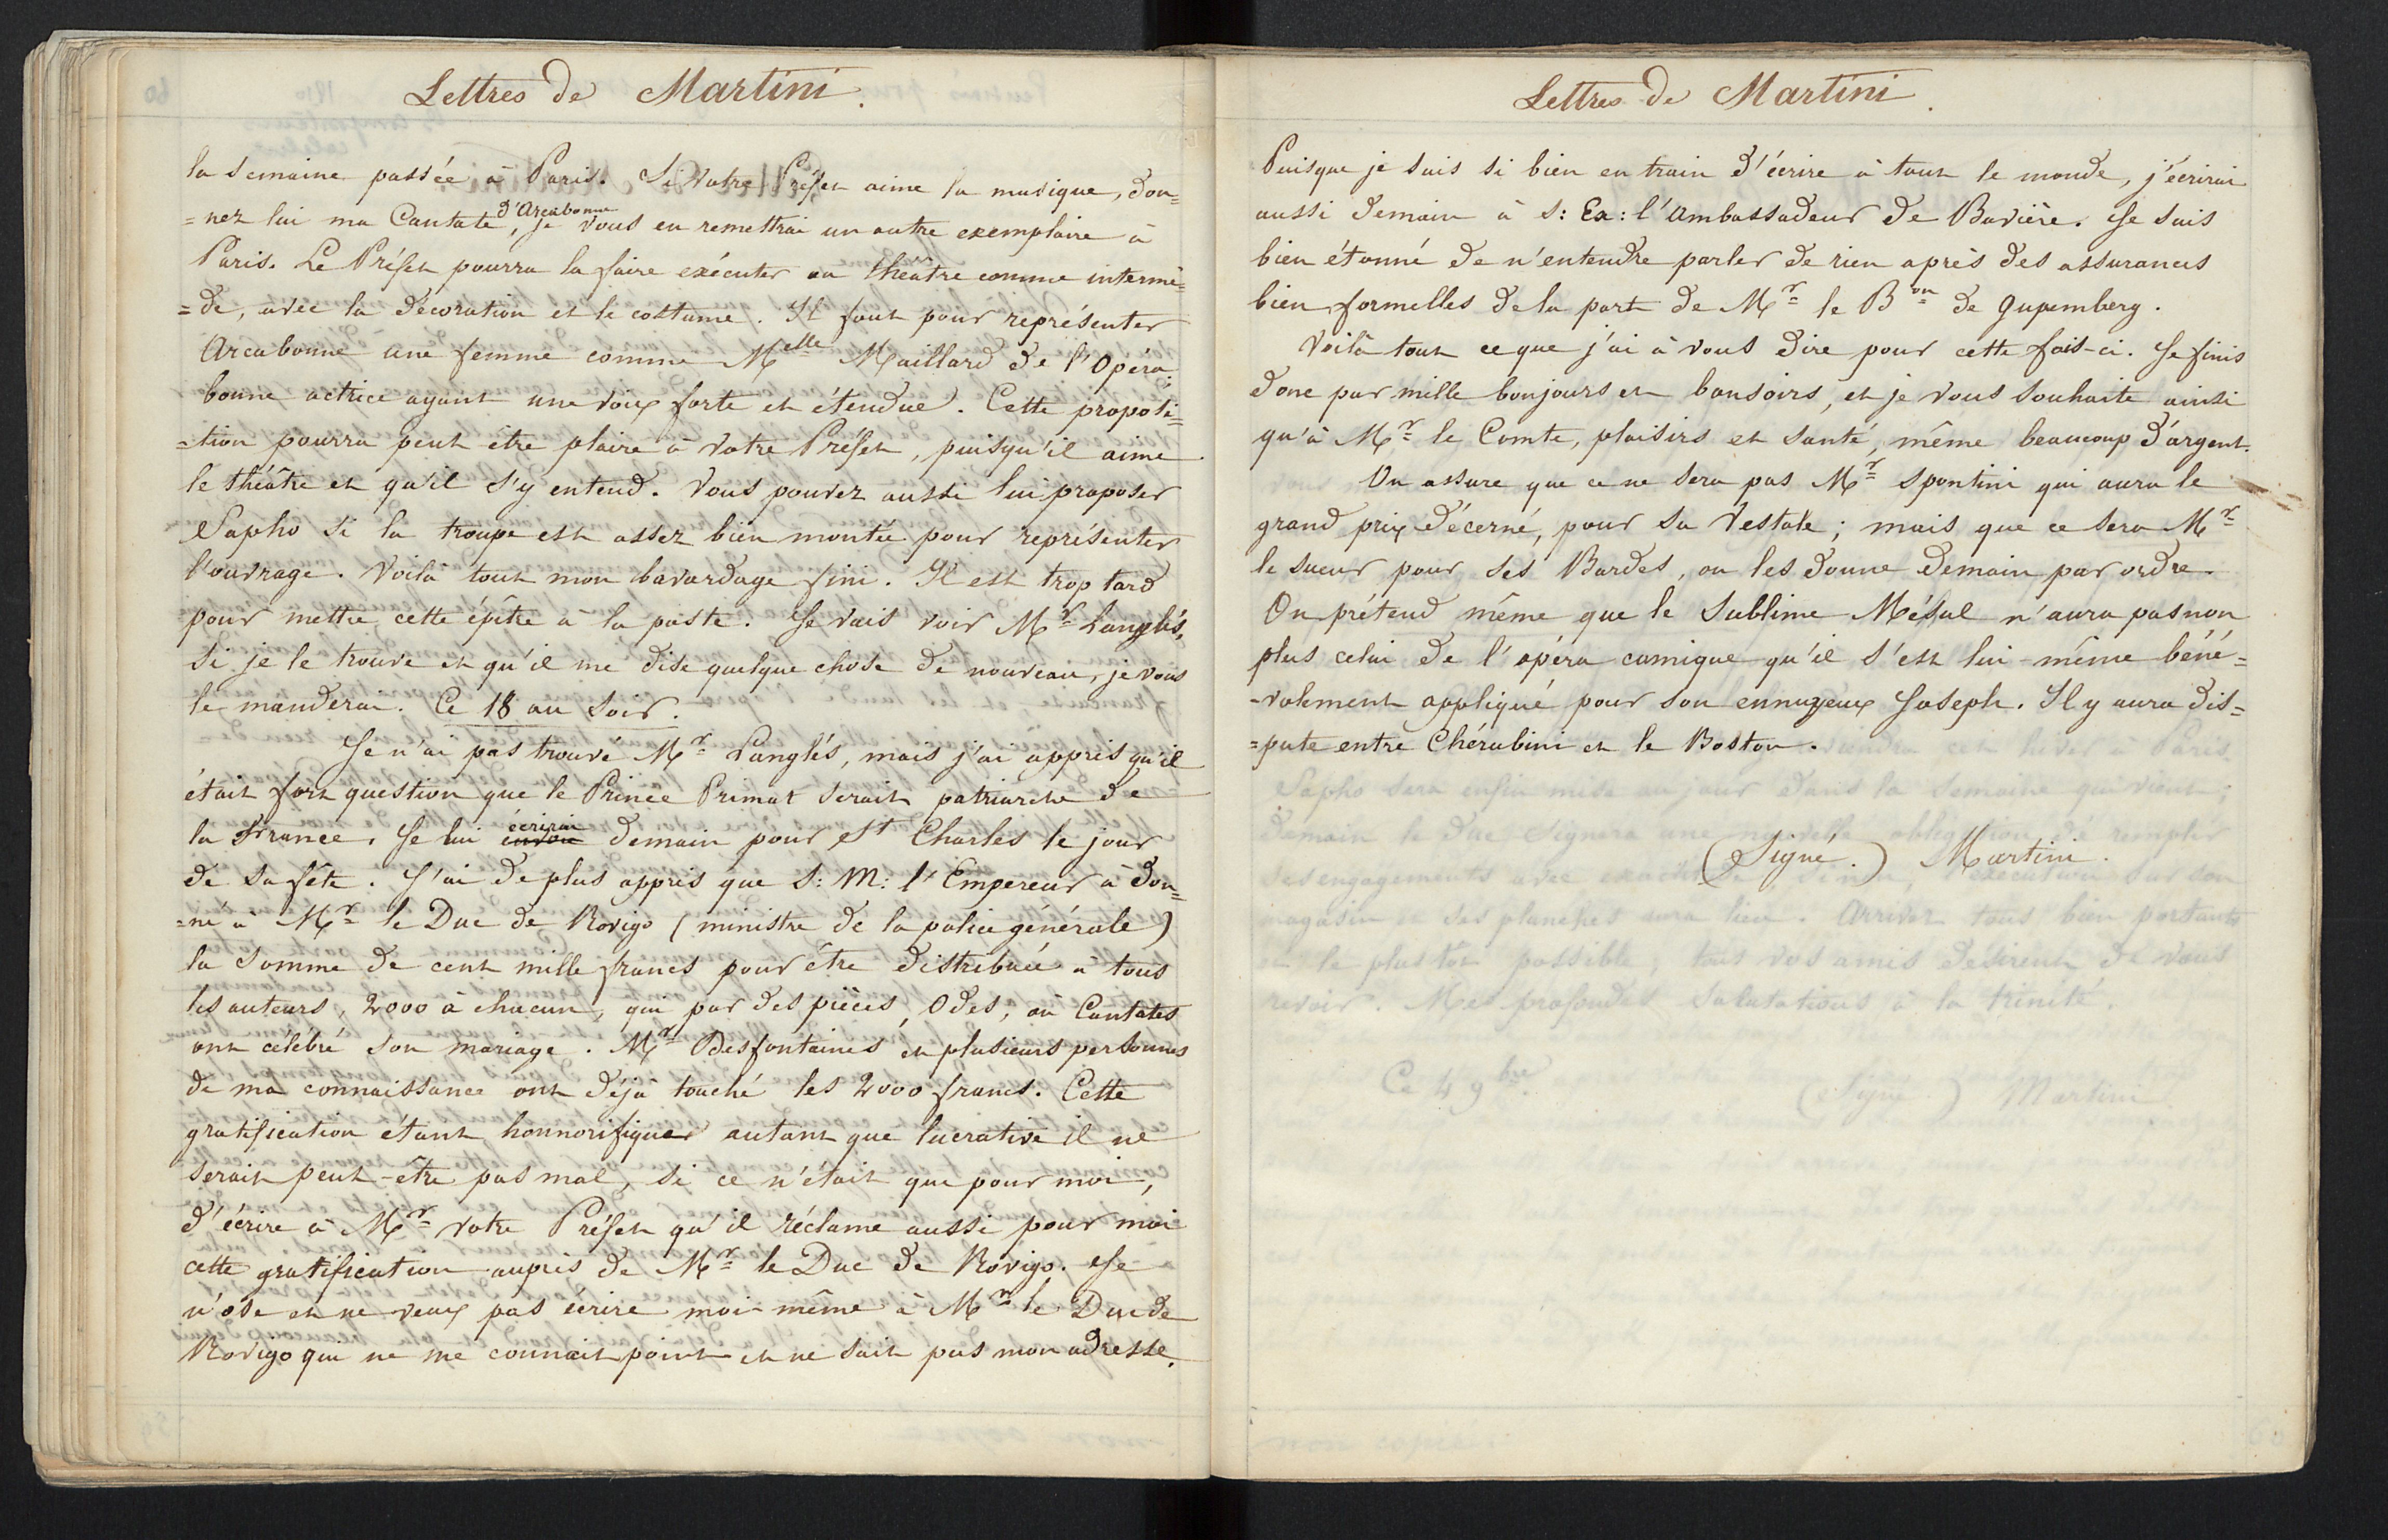 Lettres de Martini.
la semaine passée à Paris. Si votre Préfet aime la musique, don=
=nez lui ma Cantate d'Arcabonne, je vous en remettrai un autre exemplaire à
Paris. Le Préfet pourra la faire exécuter au théâtre comme intermè=
=de, avec la décoration et le costume. Il faut pour représenter
Arcabonne une femme comme Melle Maillard de l'Opéra;
bonne actrice ayant une voix forte et étendue. Cette proposi=
=tion pourra peut être plaire à votre Préfet, puisqu'il aime
le théâtre et qu'il s'y entend. Vous pouvez aussi lui proposer
Sapho si la troupe est assez bien montée pour représenter
l'ouvrage. Voilà tout mon bavardage fini. Il est trop tard
pour mettre cette épître à la poste. Je vais voir Mr Langlés,
si je le trouve et qu'il me dise quelque chose de nouveau, je vous
le manderai. Ce 18 au soir.
Je n'ai pas trouvé Mr Langlés, mais j'ai appris qu'il
était fort question que le Prince Primat serait patriarche de
la France. Je lui envoie écrirai demain pour St Charles le jour
de sa fête. J'ai de plus appris que S: M: l'Empereur a don=
=né à Mr le Duc de Rovigo (ministre de la police générale)
la somme de cent mille francs pour être distribuée à tous
les auteurs, 2000 à chacun, qui par des pièces, Odes, ou Cantates
ont célébré son mariage. Mr Desfontaines et plusieurs personnes
de ma connaissance ont déjà touché les 2000 francs. Cette
gratification étant honnorifique autant que lucrative il ne
serait peut-être pas mal, si ce n'était que pour moi,
d'écrire à Mr votre Préfet qu'il réclame aussi pour moi
cette gratification auprès de Mr le Duc de Rovigo. Je
n'ose et ne veux pas écrire moi-même à Mr le Duc de
Rovigo qui ne me connait point et ne sait pas mon adresse.
Lettres de Martini.
Puisque je suis si bien en train d'écrire à tout le monde, j'écrirai
aussi demain à S: Ex: l'Ambassadeur de Bavière. Je suis
bien étonné de n'entendre parler de rien après des assurances
bien formelles de la part de Mr le Bon de Gupemberg.
Voilà tout ce que j'ai à vous dire pour cette fois-ci. Je finis
donc par mille bonjours et bonsoirs, et je vous souhaite ainsi
qu'à Mr le Comte, plaisirs et santé, même beaucoup d'argent.
On assure que ce ne sera pas Mr Spontini qui aura le
grand prix décerné, pour sa Vestale; mais que ce sera Mr
le sueur pour ses Bardes, on les donne demain par ordre.
On prétend même que le sublime Méhul n'aura pas non
plus celui de l'opéra comique qu'il s'est lui-même béné=
-volement appliqué pour son ennuyeux Joseph. Il y aura dis=
=pute entre Chérubini et le Boston.
(Signé.) Martini.